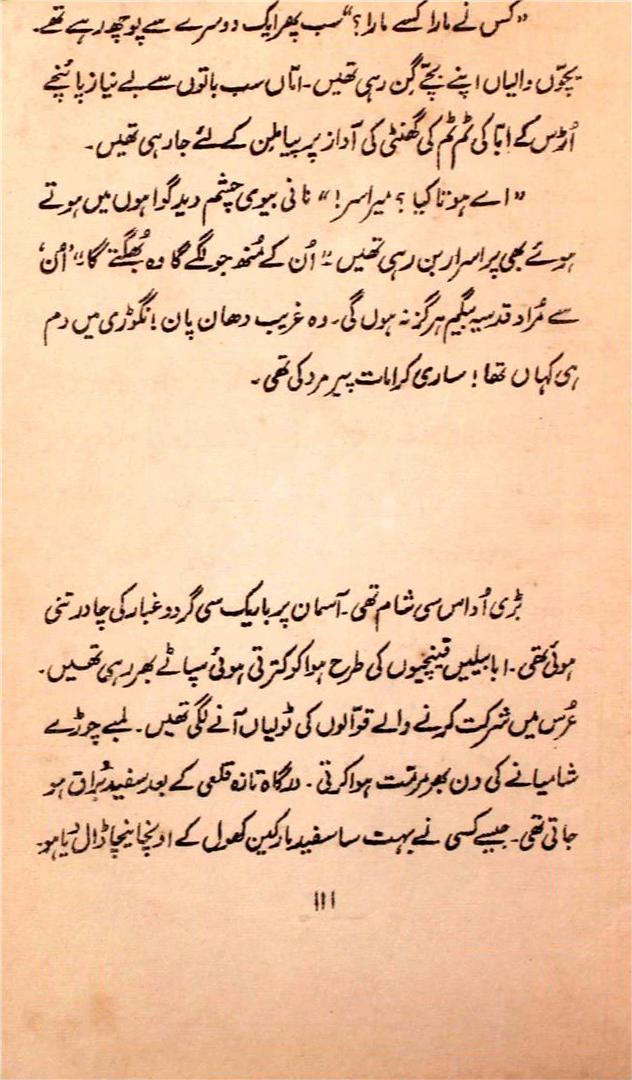 ”کس نے مارا کسے مارا؟“ سب پھر ایک دوسرے سے پوچھ رہے تھے۔
بچّوں والیاں اپنے بچّے گِن رہی تھیں۔ امّاں سب باتوں سے بے نیاز پائنچے
اُڑس کے ابّا کی ٹم ٹم کی گھنٹی کی آواز پر پیا ملن کے لئے جا رہی تھیں۔
”اے ہوتا کیا؟ میرا سر!“ نانی بیوی چشم دید گواہوں میں ہوتے
ہوئے بھی پراسرار بن رہی تھیں۔ ”اُن کے مُنھ جو لگے گا وہ بُھگتے گا۔“ ’اُن‘
سے مُراد قدسیہ بیگم ہرگز نہ ہوں گی۔ وہ غریب دھان پان! نگوڑی میں دم
ہی کہاں تھا! ساری کرامات پیر مرد کی تھی۔
بڑی اُداس سی شام تھی۔ آسمان پر باریک سی گرد و غبار کی چادر تنی
ہوئی تھی۔ ابابیلیں قینچیوں کی طرح ہوا کو کترتی ہوئی سپاٹے بھر رہی تھیں۔
عُرس میں شرکت کرنے والے قوّالوں کی ٹولیاں آنے لگی تھیں۔ لمبے چوڑے
شامیانے کی دن بھر مرمّت ہوا کرتی۔ درگاہ تازہ قلعی کے بعد سفید بُراق ہو
جاتی تھی۔ جیسے کسی نے بہت سا سفید مارکین کھول کے اونچا نیچا ڈال دیا ہو۔
۱۱۱